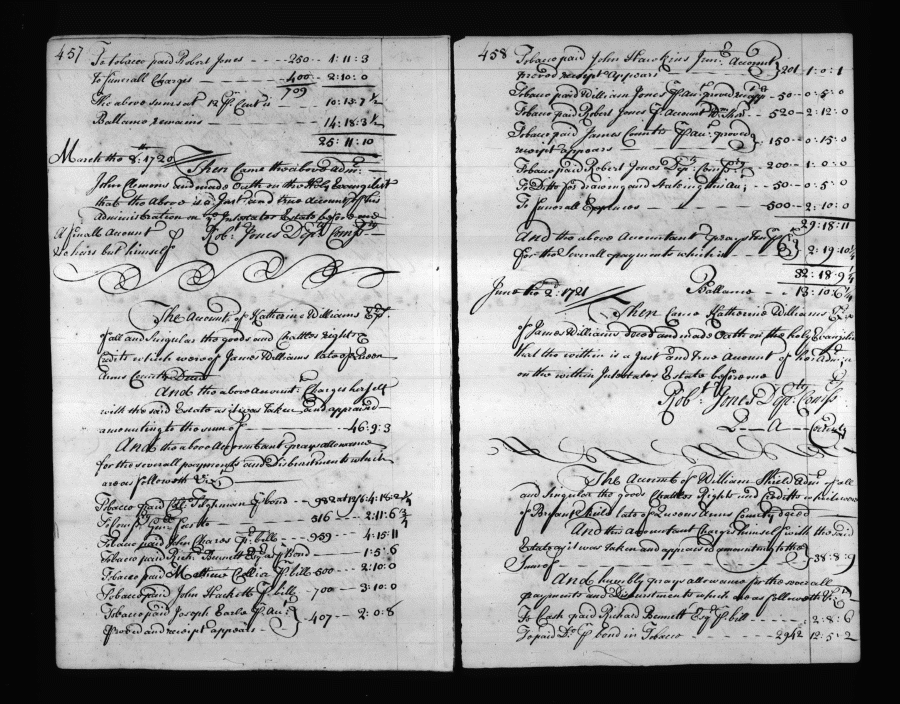 457
To tobacco paid Robert Jones - - - 250 - - 1:11:3
To funerall Charges - - - - 400 - - 2:10:0
709
The above sums at 12 p Cent is - - - 10:13:7½
Ballance remains - - - 14:18:3½
25:11:10
March the 8th: 1720 Then Came the above Admr:
John Clemons and made Oath on the Holy Evangelist
that the Above is a Just and true Account of his
Administration on ye Intestates Estate before me
A finall Account p Robt: Jones Depty Comssy
No heirs but himself
The Account of Katherine Williams Exx
of all and Singular the goods and Chattles Rights &
Credits which were of James Williams late of Queen
Anns County Decd
And the above Account: Charges herself
with the said Estate as it was taken and appraised
amounting to the sum of - - - 46:9:3
And the above Accountant prays allowance
for the severall payments and Disbursements which
are as followeth Viz
Tobacco paid Coll: Tilghman p bond - - 982 at 12/6: 4:18:2¼
316 - - - 2:11:6¾
Tobacco paid John Chares p bill - - 959 - - 4:15:11
Tobacco paid Richd: Bennett Esq p Bond - - 1:5:6
Tobacco paid Mathew p bill - 500 - - - 2:10:0
Tobacco paid John Hackett p bill - - 700 - - - 3:10:0
Tobacco paid Joseph Earle p Acct:
proved and receipt appears - - } 407 - - 2:0:8
458
Tobacco paid John Hawkins Junr: Account
proved receipt Appears - - - } 201 - 1:0:1
Tobacco paid William Jones p Acc: proved recp - 50 - - 0:5:0
Tobacco paid Robert Jones p Account - - 520 - - 2:12:0
Tobacco paid James p Acc: proved
receipt appears - - - } 150 - - 0:15:0
Tobacco paid Robert Jones Dep: Comssy - - 200 - - 1:0:0
To Ditto for drawing and Stateing this Acc; - - 50 - - 0:5:0
To funerall Expences - - - - 500 - - 2:10:0
29:18:11
And the above Accountant prays
for the severall payments which is - - 2:19:10¼
32:18:9¼
June the 2d: 1721 Ballance - - 13:10:6¼
Then Came Katherine Williams Exx
of James Williams deced and made Oath on the holy Evangelist
that the within is a Just and true Account of her
on the within Intestates Estate before me
Robt Jones Depty Comssy
Q - - A - County
The Account of William Shield Admr of all
and Singular the goods Chattles Rights and Creditts which were
of Bryan Shield late of Queens Anns County deced
And the accountant Charges himself with the said
Estate as it was taken and appraised amounting to the
Sume of - - - } 38:8:9
And humbly prays allowance for the severall
payments and disbursments which are as followeth Viz
To Cash paid Richard Bennett Esq p bill - - - 2:8:6
To paid Do p bond in Tobacco - - - 2942 12:5:2